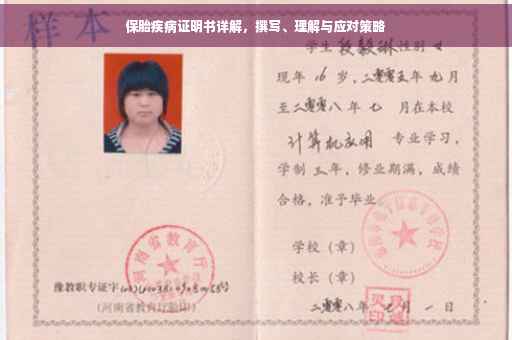 保胎疾病证明书详解，撰写、理解与应对策略
样本
学生段毅琳性别女
现年16岁，二零零五年九月
至二零零八年七月在本校
计算机应用 专业学习，
学制三年，修业期满，成绩
合格，准予毕业
学校（章）
校长（章）
二零零八年七月一日
河南省教育厅
豫教职专证字
（河南省教育厅验印）